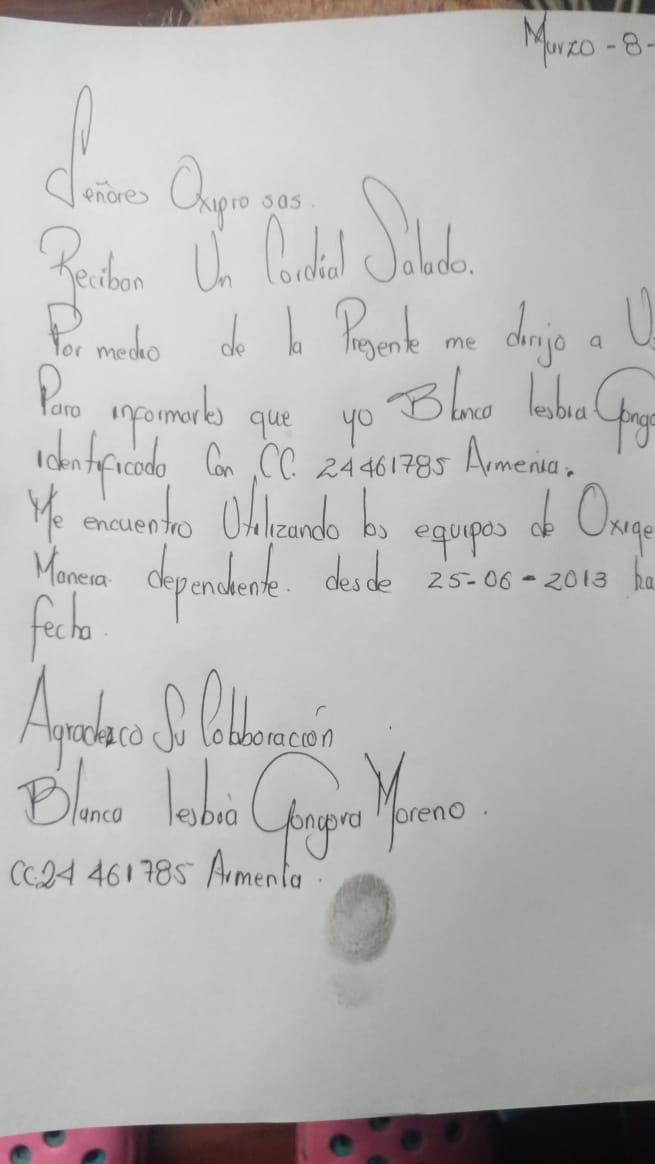 Marzo - 8 -
Señores Oxipro sas.
Reciban Un Cordial Salado.
Por medio de la Presente me dirijo a U
Para informarles que yo Blanca lesbia Gongo
identificado Con CC. 24461785 Armenia.
Me encuentro Utilizando los equipos de Oxige
Manera dependiente. desde 25-06-2013 ha
fecha.
Agradezco Su Colaboración
Blanca lesbia Gongora Moreno.
CC.24 461785 Armenia.